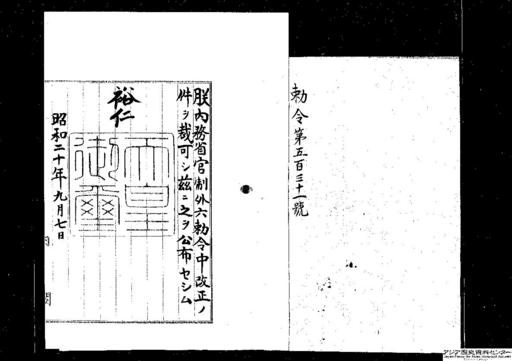 勅令第五百三十一號
朕內務省官制外六勅令中改正ノ
件ヲ裁可シ茲ニ之ヲ公布セシム
裕仁
天皇
御璽
昭和二十年九月七日
内閣
アジア歴史資料センター